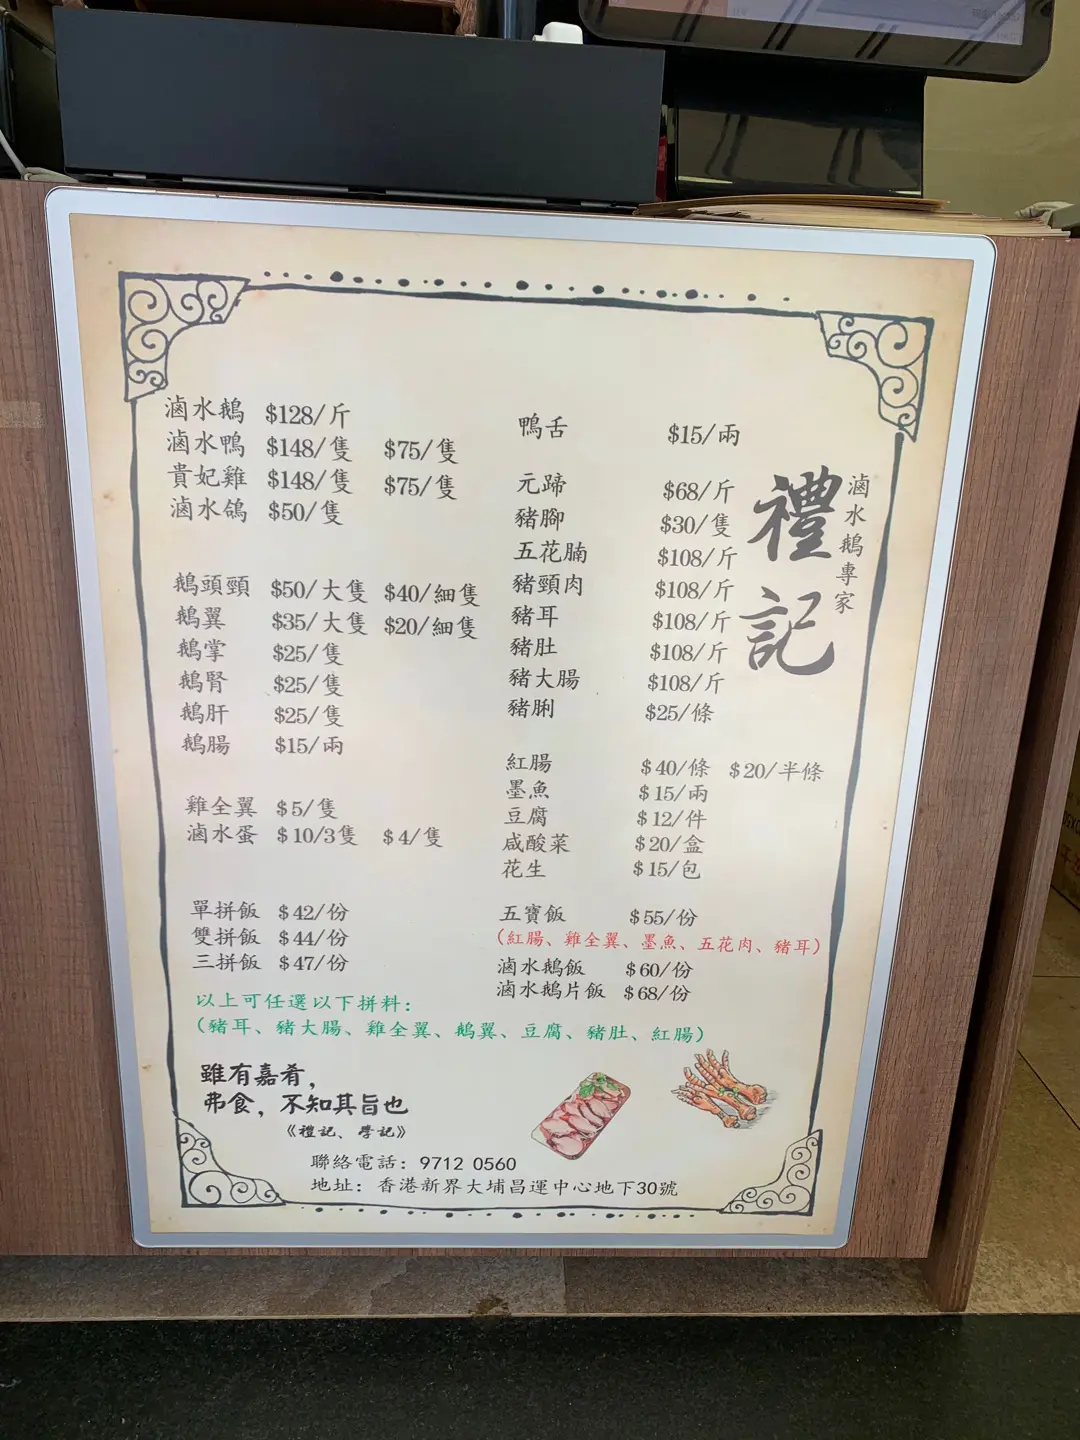 滷水鵝 $128/斤
滷水鴨 $148/隻 $75/隻
貴妃雞 $148/隻 $75/隻
滷水鴿 $50/隻
鵝頭頸 $50/大隻 $40/細隻
鵝翼 $35/大隻 $20/細隻
鵝掌 $25/隻
鵝腎 $25/隻
鵝肝 $25/隻
鵝腸 $15/兩
雞全翼 $5/隻
滷水蛋 $10/3隻 $4/隻
單拼飯 $42/份
雙拼飯 $44/份
三拼飯 $47/份
鴨舌 $15/兩
元蹄 $68/斤
豬腳 $30/隻
五花腩 $108/斤
豬頸肉 $108/斤
豬耳 $108/斤
豬肚 $108/斤
豬大腸 $108/斤
豬脷 $25/條
紅腸 $40/條 $20/半條
墨魚 $15/兩
豆腐 $12/件
咸酸菜 $20/盒
花生 $15/包
五寶飯 $55/份
(紅腸、雞全翼、墨魚、五花肉、豬耳)
滷水鵝飯 $60/份
滷水鵝片飯 $68/份
滷水鵝專家
禮記
以上可任選以下拼料:
(豬耳、豬大腸、雞全翼、鵝翼、豆腐、豬肚、紅腸)
雖有嘉肴,
弗食, 不知其旨也
《禮記、學記》
聯絡電話: 9712 0560
地址: 香港新界大埔昌運中心地下30號